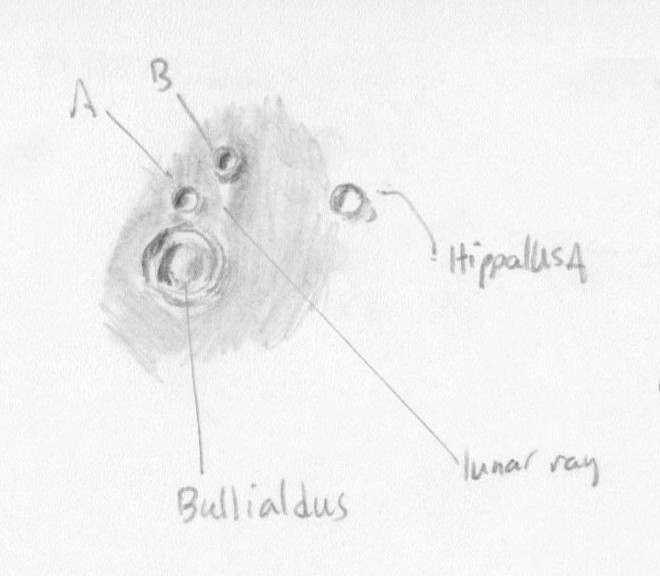 B
A
HippallusA
lunar ray
Bullialdus